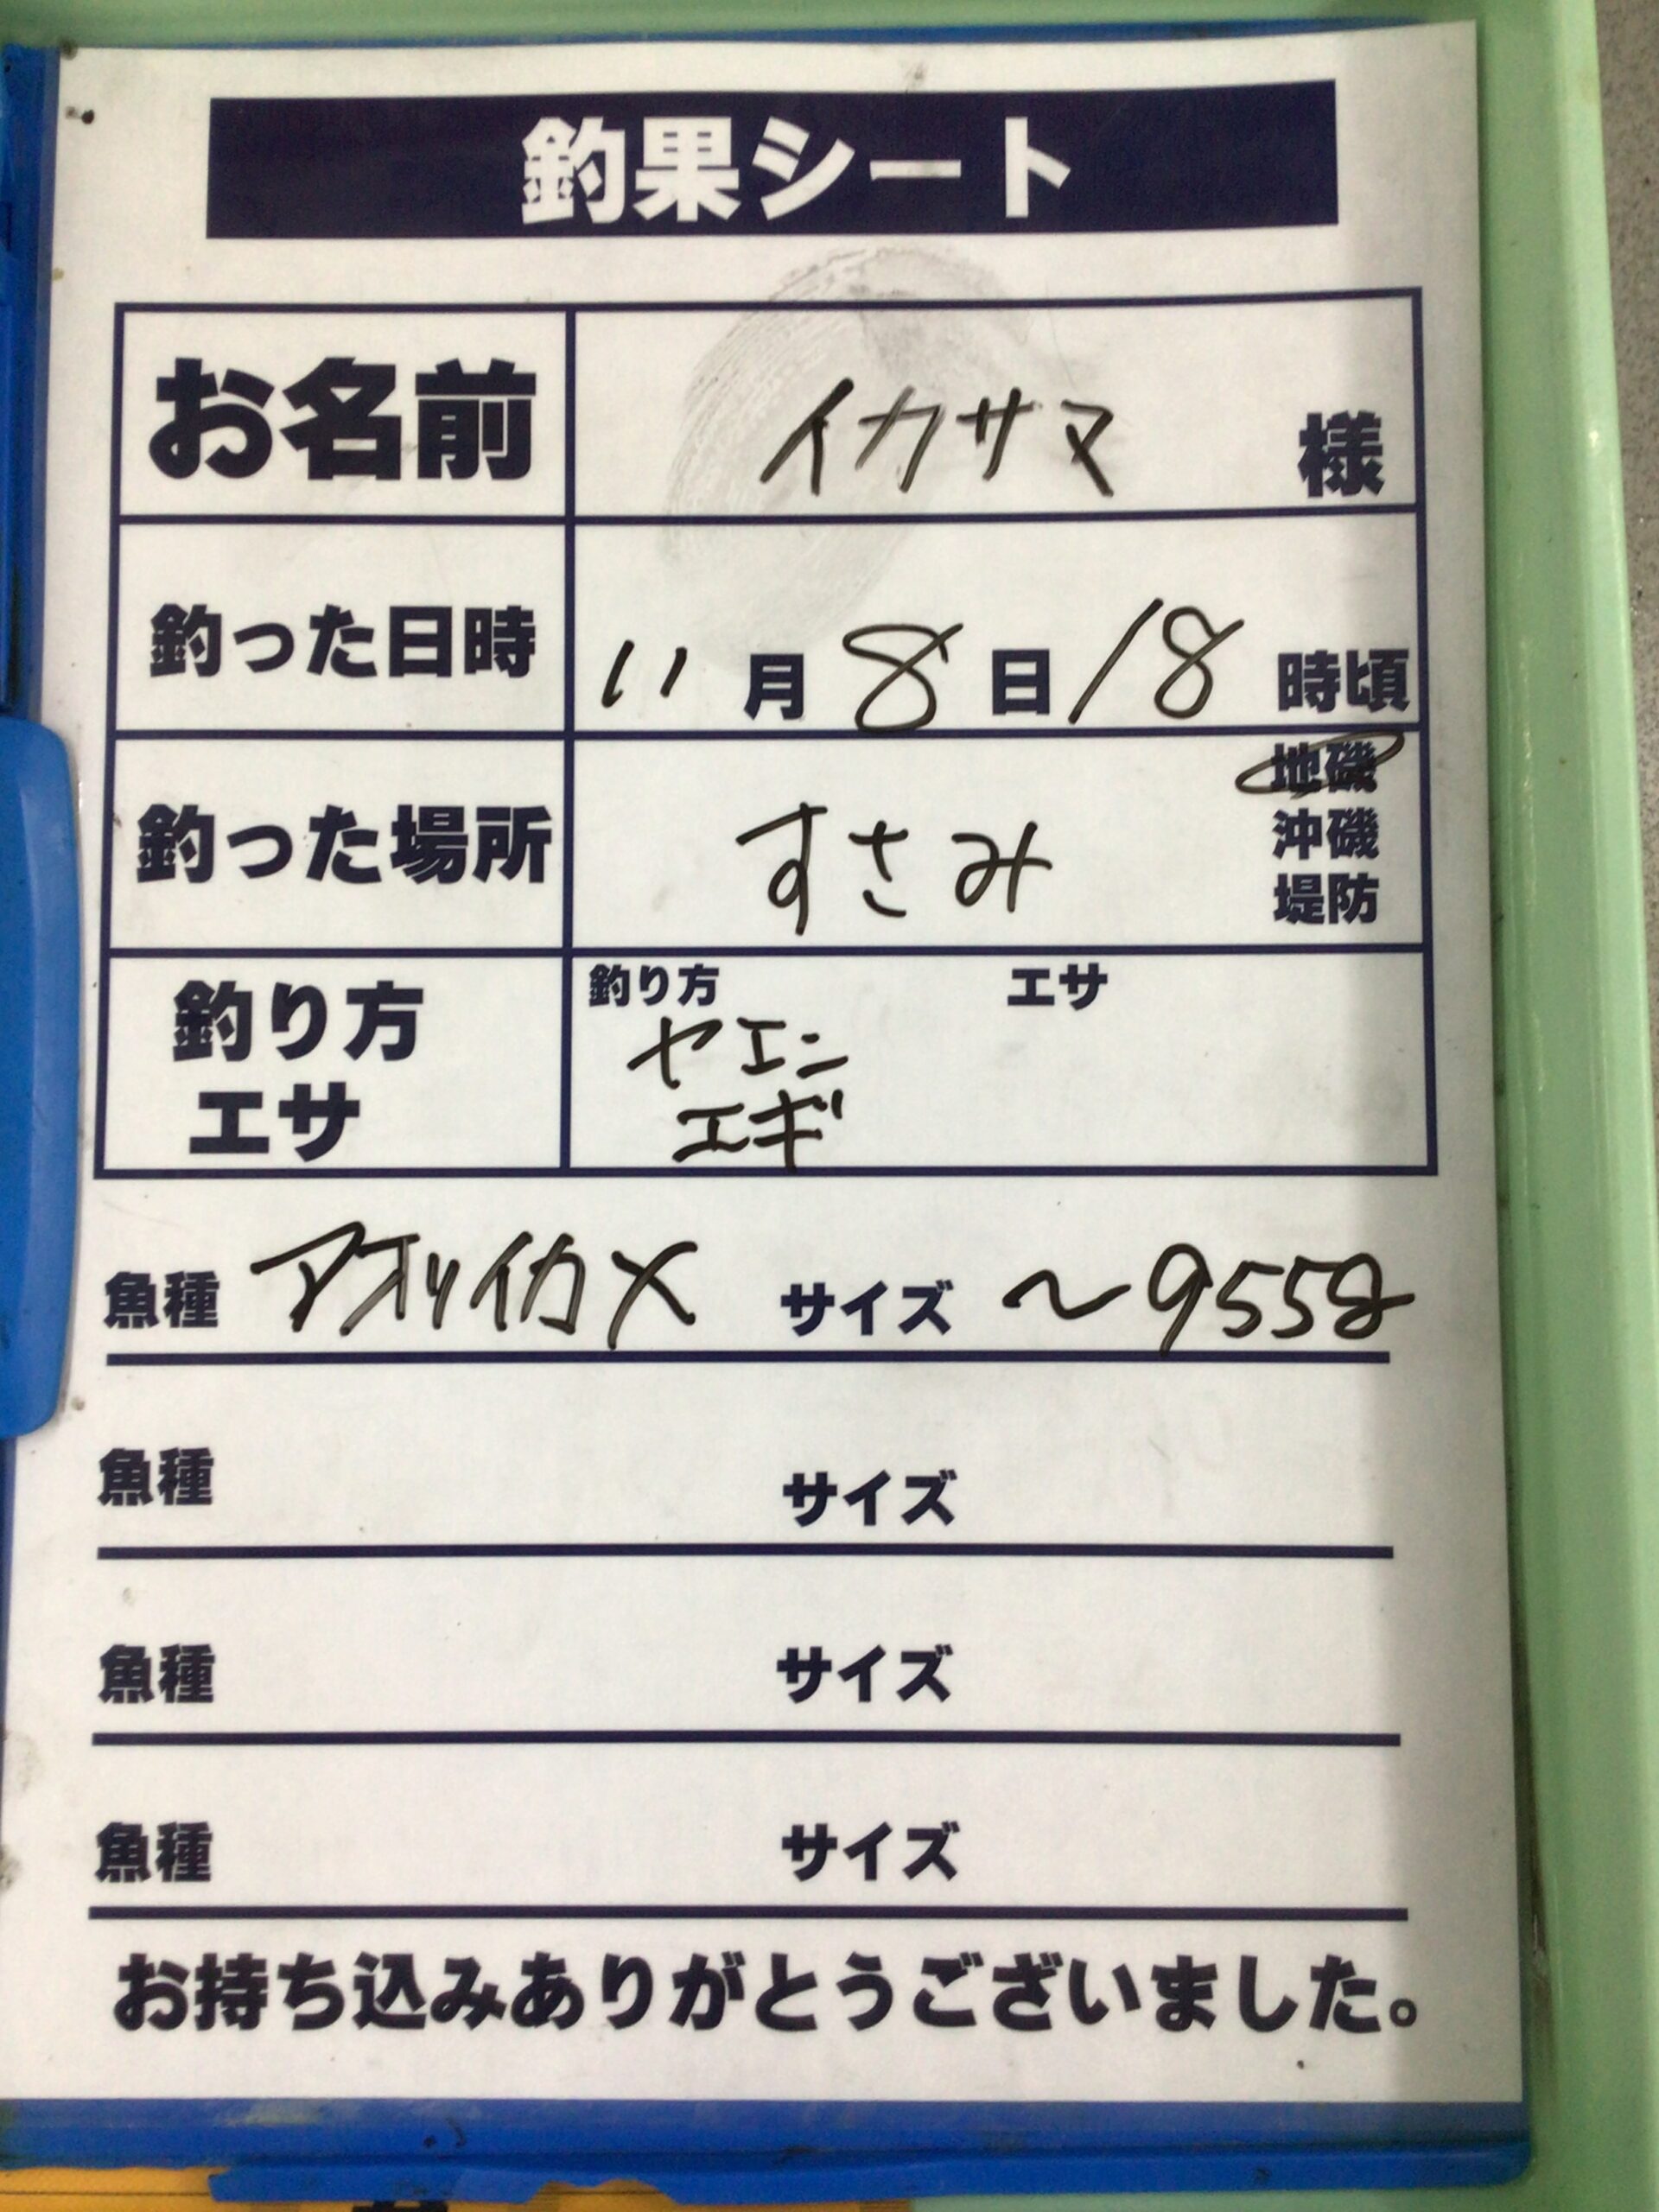 釣果シート
お名前 イカサマ 様
釣った日時 11月8日18時頃
釣った場所 すさみ 地磯
沖磯
堤防
釣り方 エサ
釣り方 ヤエン
エサ エギ
魚種 アオリイカ× サイズ ~955g
魚種 サイズ
魚種 サイズ
魚種 サイズ
お持ち込みありがとうございました。